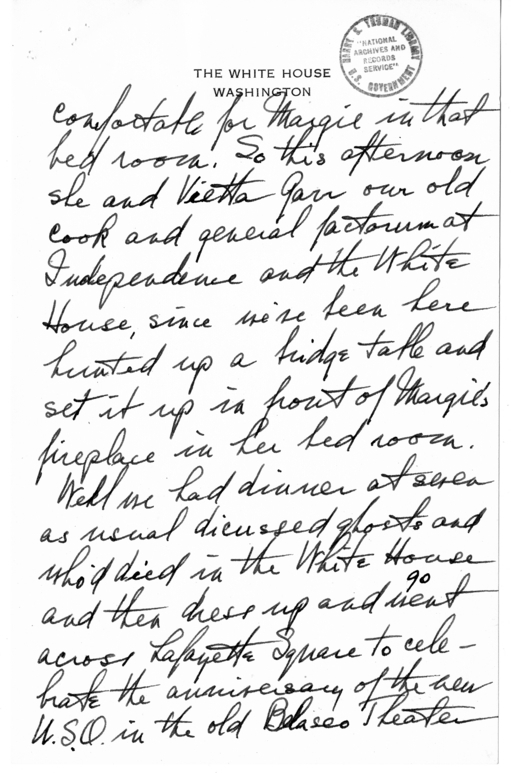 HARRY S. TRUMAN LIBRARY
"NATIONAL
ARCHIVES AND
RECORDS
SERVICE"
U.S. GOVERNMENT
THE WHITE HOUSE
WASHINGTON
comfortable for Margie in that
bed room. So this afternoon
she and Vietta Garr our old
cook and general factorum at
Independence and the White
House, since we've been here
hunted up a bridge table and
set it up in front of Margie's
fireplace in her bed room.
Well we had dinner at seven
as usual dicussed ghosts and
who'd died in the White House
and then dress up and went go
across Lafayette Square to cele-
brate the anniversary of the new
U.S.O. in the old Belasco Theater